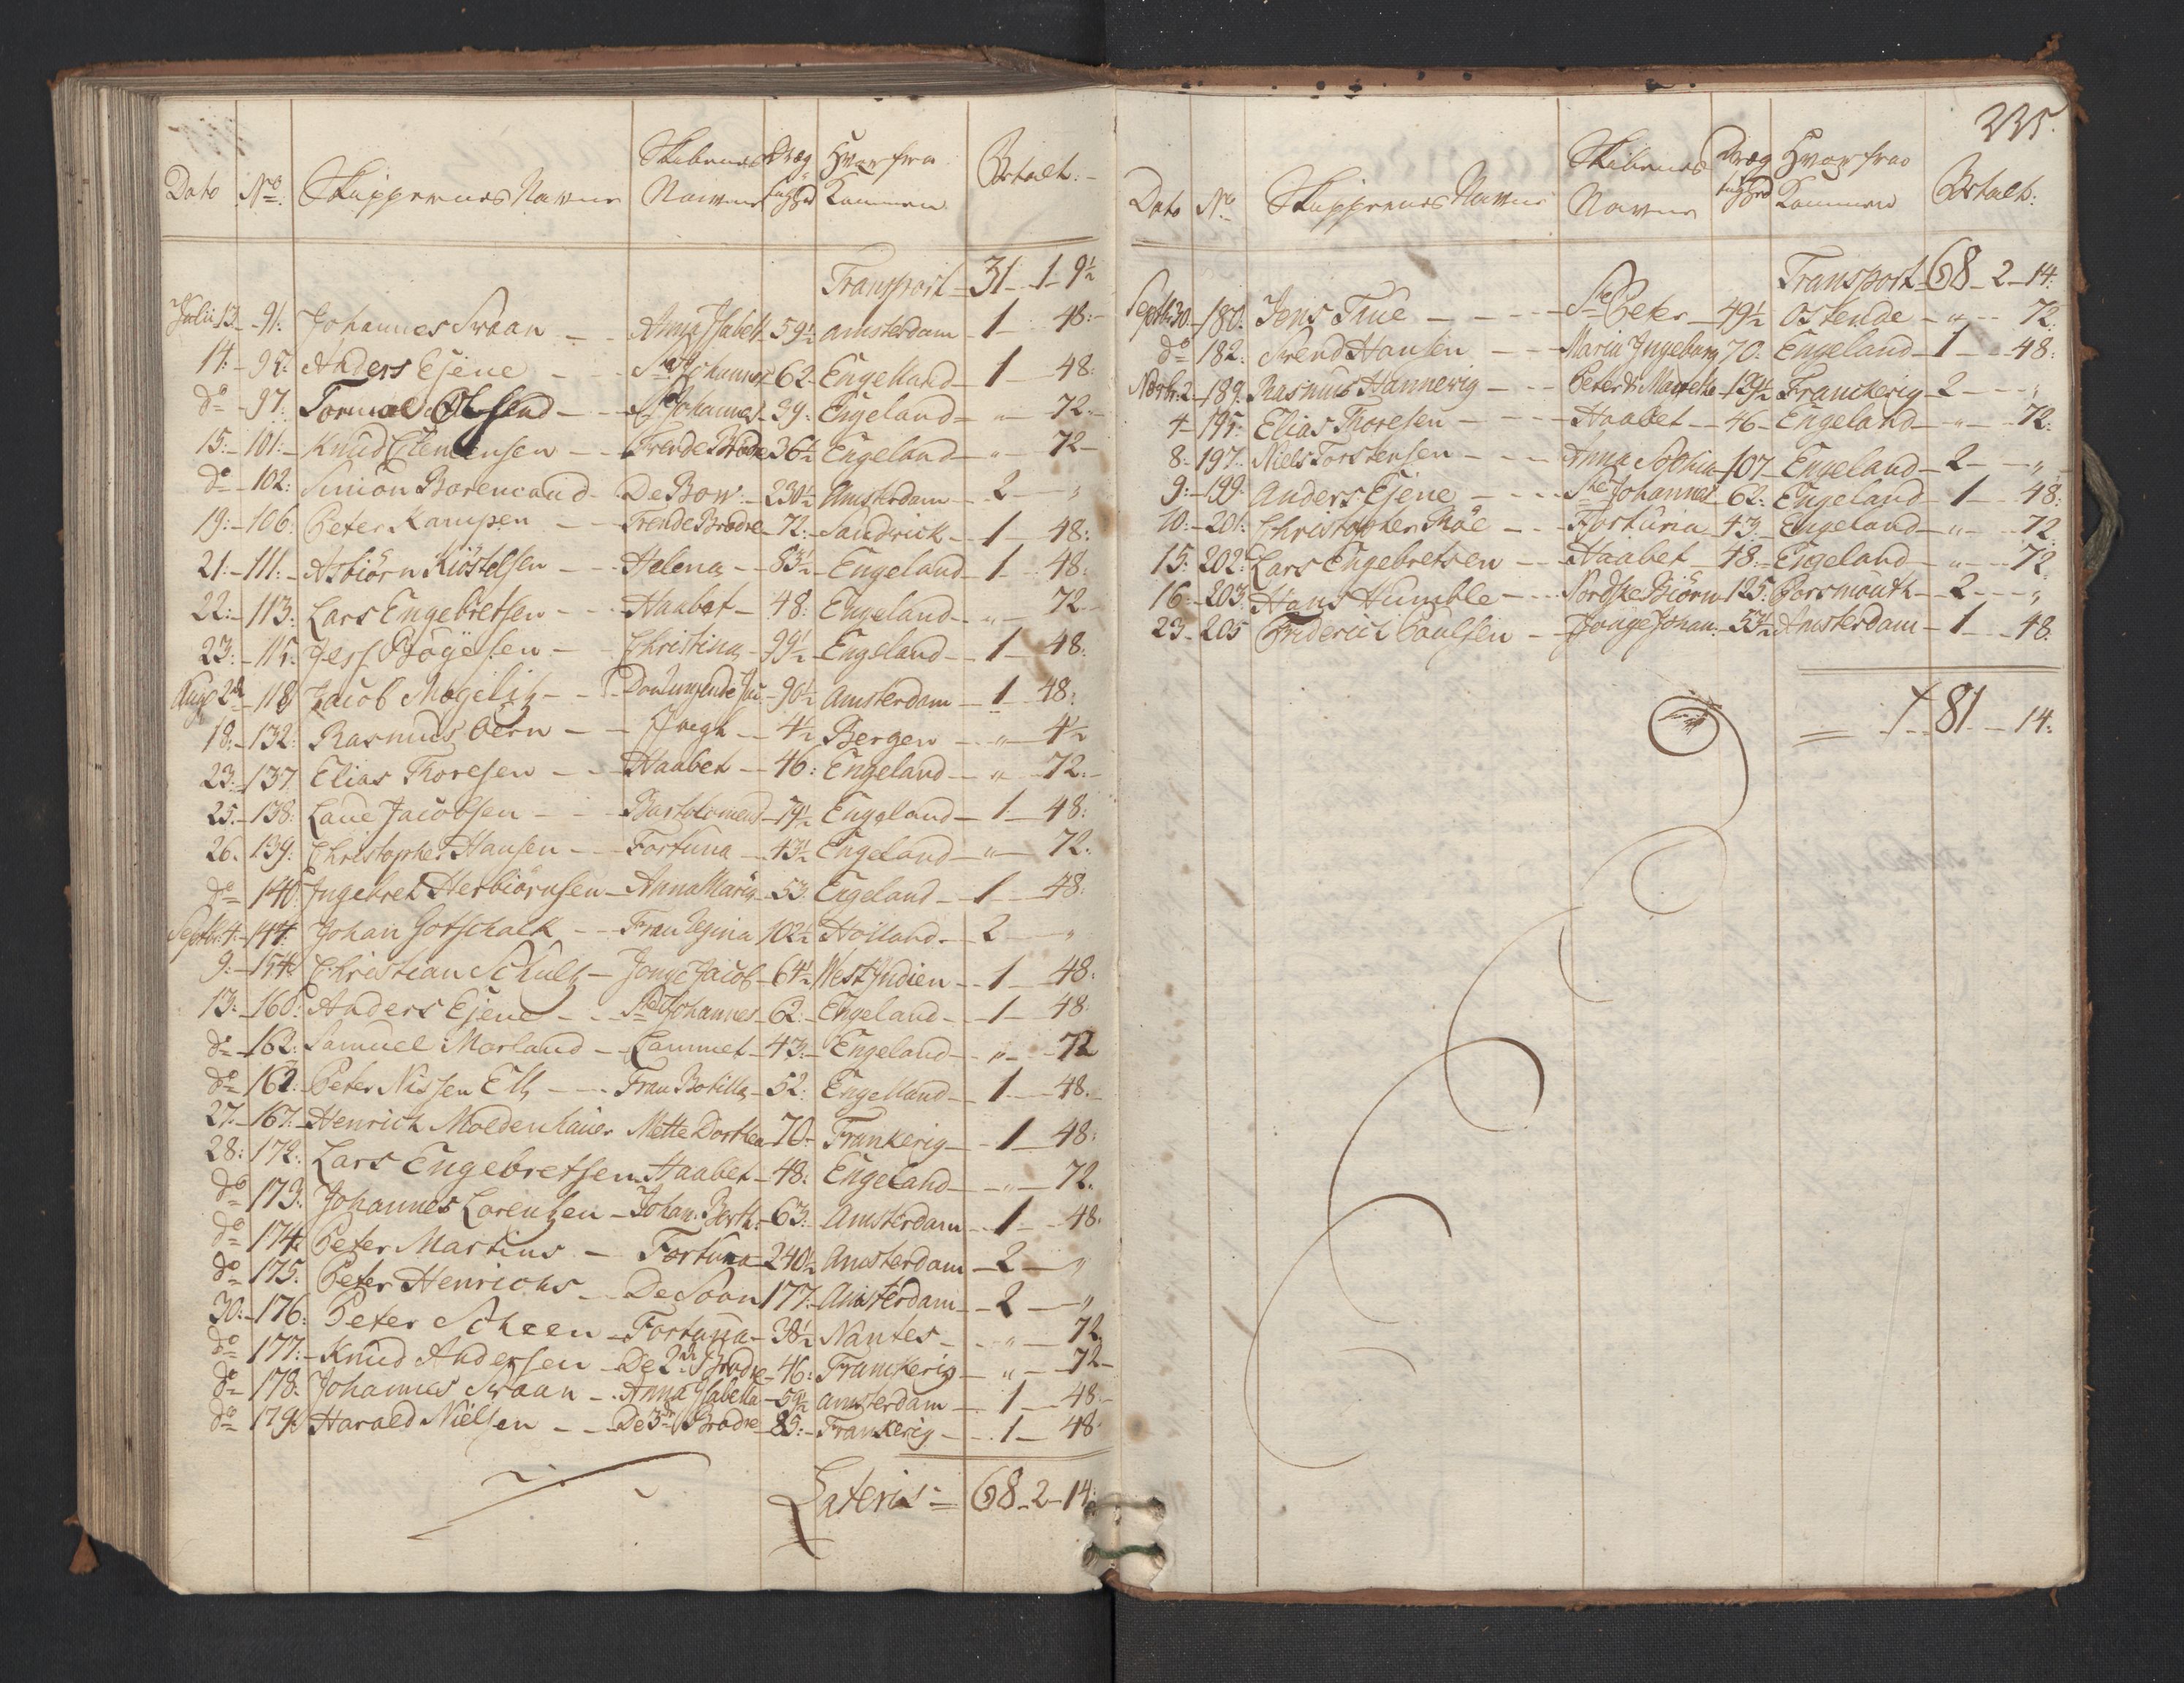 Dato No Skippernes Navne Skibenes Navne Dræg tighed Hvor fra Kommen Betalt.
Transport 31 1 9½
Julii 13 91. Johannes Svaan Anna Isabella 59½ Amsterdam 1 48.
14. 95. Anders Ejene Ste Johannes 62 Engelland 1 48.
do 97. Tormod Olsen Ste Johannes 39. Engeland " 72.
15. 101. Knud Clemensen Trende Brødre 36½ Engeland " 72
do 102. Simon Borencand De Bow 230½ Amsterdam 2 "
19. 106. Peter Kampen Trende Brødre 72. Sandvick 1 48.
21. 111. Asbiörn Kiöstelsen Helena 83½ Engeland 1 48.
22. 113. Lars Engebretsen Haabet 48. Engeland " 72
23. 115. Jess Bøgesen Christina 99½ Engeland 1 48.
Aug. 2de 118. Jacob Mogelitz 90½ Amsterdam 1 48.
18. 132. Rasmus Bern Jægt 4½ Bergen " 4½
23. 137. Elias Thoresen Haabet 46. Engeland " 72.
25. 138. Laue Jacobsen Bartolomeus 74½ Engeland 1 48.
26. 139. Christopher Hansen Fortuna 43½ Engeland " 72.
do 140. Ingebret Herbiörnsen Anna Maria 53. Engeland 1 48.
Septbr. 4. 144. Johan Gotschalk Frau Regina 102½ Holland 2 "
9. 154. Christian Schultz Jonge Jacob 64½ West Indien 1 48.
13. 160. Anders Ejene Ste Johannes 62. Engeland 1 48
do 162. Samuel Morland Lammet 43. Engeland " 72
do 162. Peter Nissen Eltz Frau Botilla 52. Engelland 1 48.
27. 167. Henrich Moldenhauer Mette Dorthea 70. Frankerig 1 48.
28. 172. Lars Engebretsen Haabet 48. Engeland " 72.
do 173. Johannes Lorentzen Johan Berth. 63. Amsterdam 1 48.
do 174. Peter Martins Fortuna 240½ Amsterdam 2 "
do 175. Peter Henrichs De Soon 177. Amsterdam 2 "
30. 176. Peter Scheen Fortuna 38½ Nantes " 72
do 177. Knud Andersen De 2de Brødre 46. Franckerig " 72
do 178. Johannes Svaan Anna Isabella 59½ Amsterdam 1 48.
do 179. Harald Nielsen De 3de Brødre 85. Frankerig 1 48.
Lateris 68 2 14.
225.
Dato No Skippernes Navne Skibenes Navne Dræg tighed Hvor fra Kommen Betalt.
Transport 68 2 14.
Septb. 30. 180. Jens Thue Ste Peter 49½ Ostende " 72.
do 182. Svend Hansen Maria Ingeborg 70. Engeland 1 48.
Novbr. 2. 189. Rasmus Hannevig 124½ Franckerig 2 "
4. 195. Elias Thoresen Haabet 46 Engeland " 72.
8. 197. Niels Torstensen Anna Sophia 107 Engeland 2 "
9. 199. Anders Ejene Ste Johannes 62. Engeland 1 48.
10. 201. Christopher Thöe Fortuna 43. Engeland " 72.
15. 202. Lars Engebretsen Haabet 48. Engeland " 72
16. 203. Hans Humble Nordske Biørn 125. Porsmouth 2 "
23. 205 Friderich Paulsen Jonge Johan. 53½ Amsterdam 1 48.
81 14.